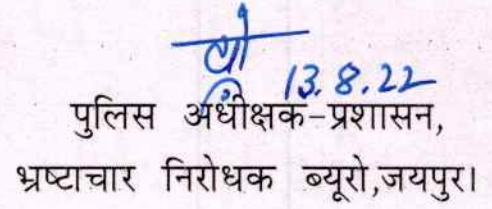 13.8.22
पुलिस अधीक्षक-प्रशासन,
भ्रष्टाचार निरोधक ब्यूरो,जयपुर।